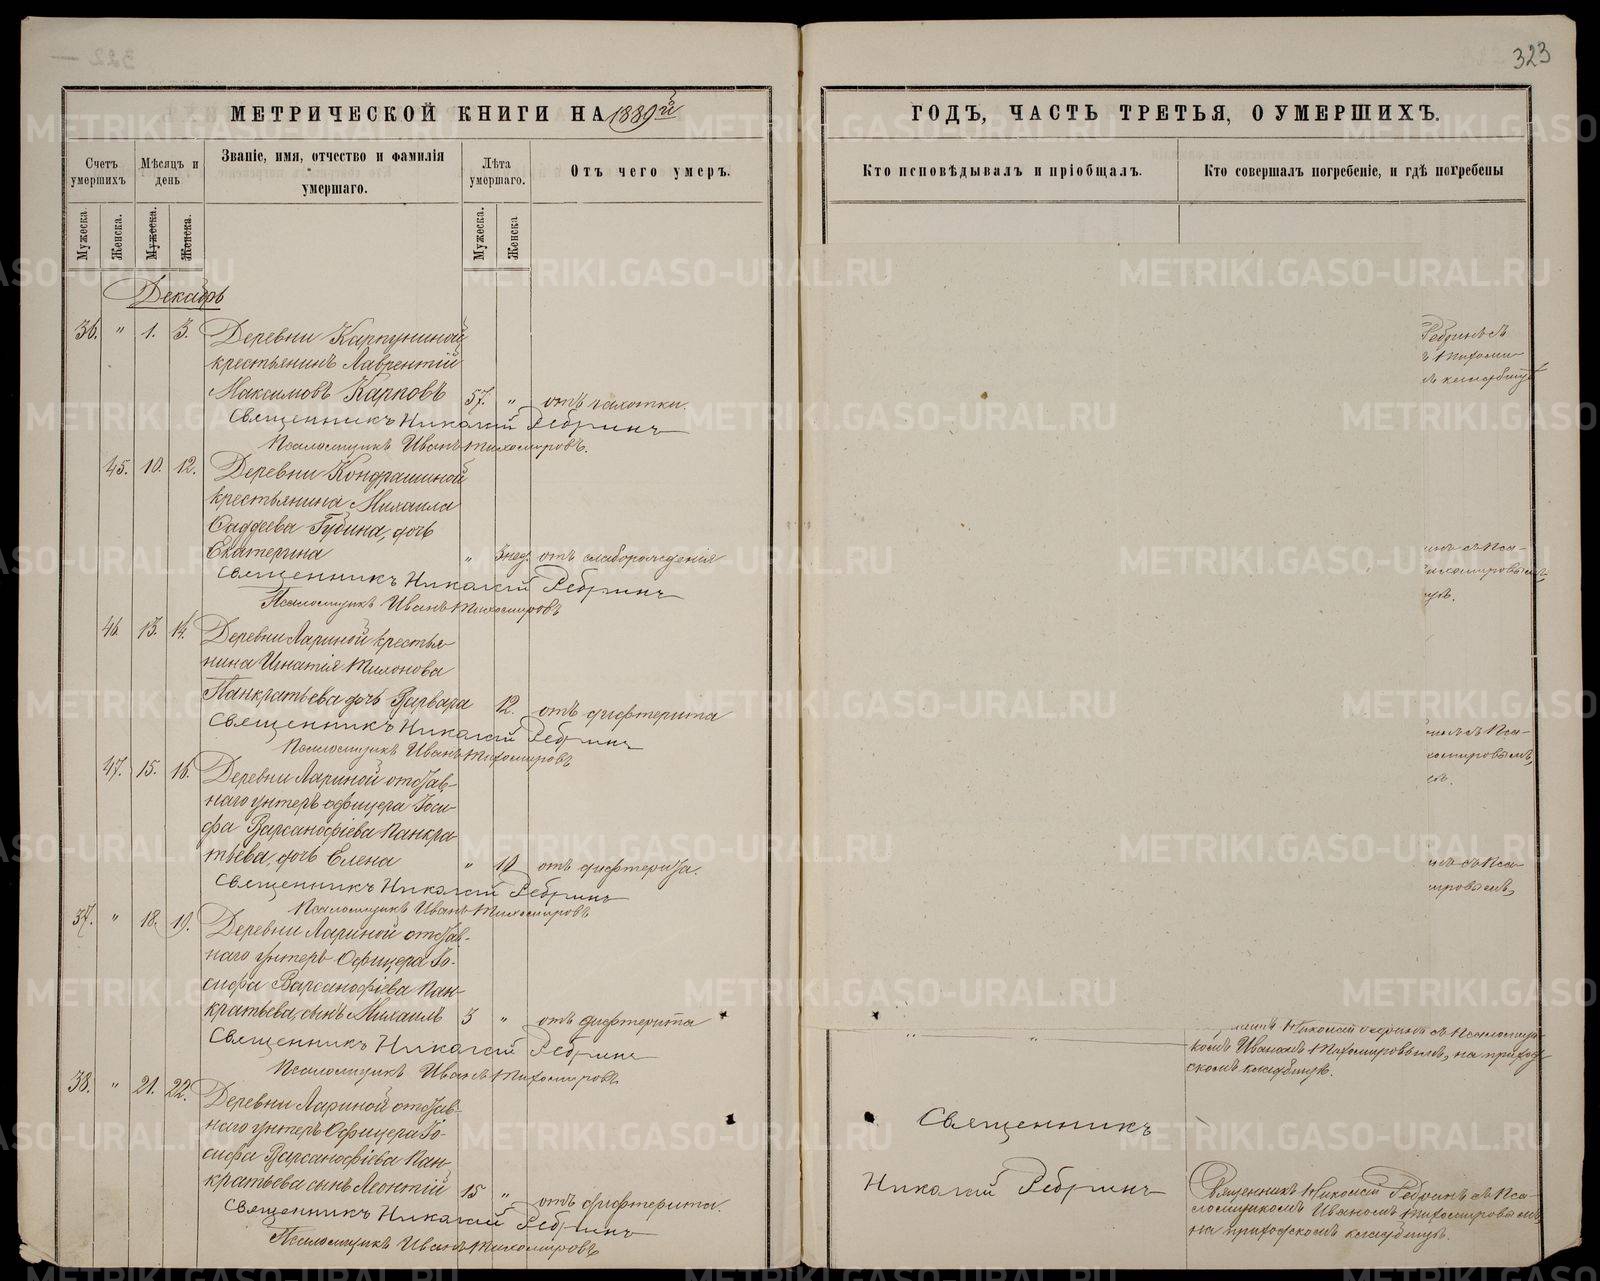 323
МЕТРИЧЕСКОЙ КНИГИ НА 1889й
ГОДЪ, ЧАСТЬ ТРЕТЬЯ, О УМЕРШИХЪ.
Счетъ умершихъ
Мѣсяцъ и день
Званіе, имя, отчество и фамилія умершаго.
Лѣта умершаго.
Отъ чего умеръ.
Кто исповѣдывалъ и пріобщалъ.
Кто совершалъ погребеніе, и гдѣ погребены
Мужеска. Женска. Мужеска. Женска. Мужеска. Женска
Декабрь
36. " 1. 3. Деревни Карпуниной
крестьянинъ Лаврентій
Максимовъ Карповъ 57. " отъ чахотки.
Священникъ Николай Ребринъ
Псаломщикъ Иванъ Тихомировъ.
45. 10. 12. Деревни Кондрашиной
крестьянина Михаила
Фаддеева Губина, дочь
Екатерина " 3 нед. отъ слаборожденія
Священникъ Николай Ребринъ
Псаломщикъ Иванъ Тихомировъ
46. 13. 14. Деревни Лариной крестья-
нина Игнатія Тихонова
Панкратьева дочь Варвара 12. отъ дифтерита
Священникъ Николай Ребринъ
Псаломщикъ Иванъ Тихомировъ
47. 15. 16. Деревни Лариной отстав-
наго унтеръ офицера Іоси-
фа Варсанофіева Панкра-
тьева, дочь Елена " 10 отъ дифтерита.
Священникъ Николай Ребринъ
Псаломщикъ Иванъ Тихомировъ
37. " 18. 19. Деревни Лариной отстав-
наго унтеръ Офицера Іо-
сифа Варсанофіева Пан-
кратьева, сынъ Михаилъ 3 " отъ дифтерита
Священникъ Николай Ребринъ
Псаломщикъ Иванъ Тихомировъ
38. " 21. 22. Деревни Лариной отстав-
наго унтеръ Офицера Іо-
сифа Варсанофіева Пан-
кратьева сынъ Леонтій 15 " отъ дифтерита.
Священникъ Николай Ребринъ
Псаломщикъ Иванъ Тихомировъ
Ребринъ съ
кладбищѣ
съ Пса-
съ Пса-
хомировымъ,
съ Пса-
мировымъ,
Николай Ребринъ съ Псаломщи-
комъ Иваномъ Тихомировымъ, на приход-
скомъ кладбищѣ.
Священникъ
Николай Ребринъ
Священникъ Николай Ребринъ съ Пса-
ломщикомъ Иваномъ Тихомировымъ
на приходскомъ кладбищѣ.
METRIKI.GASO-URAL.RU